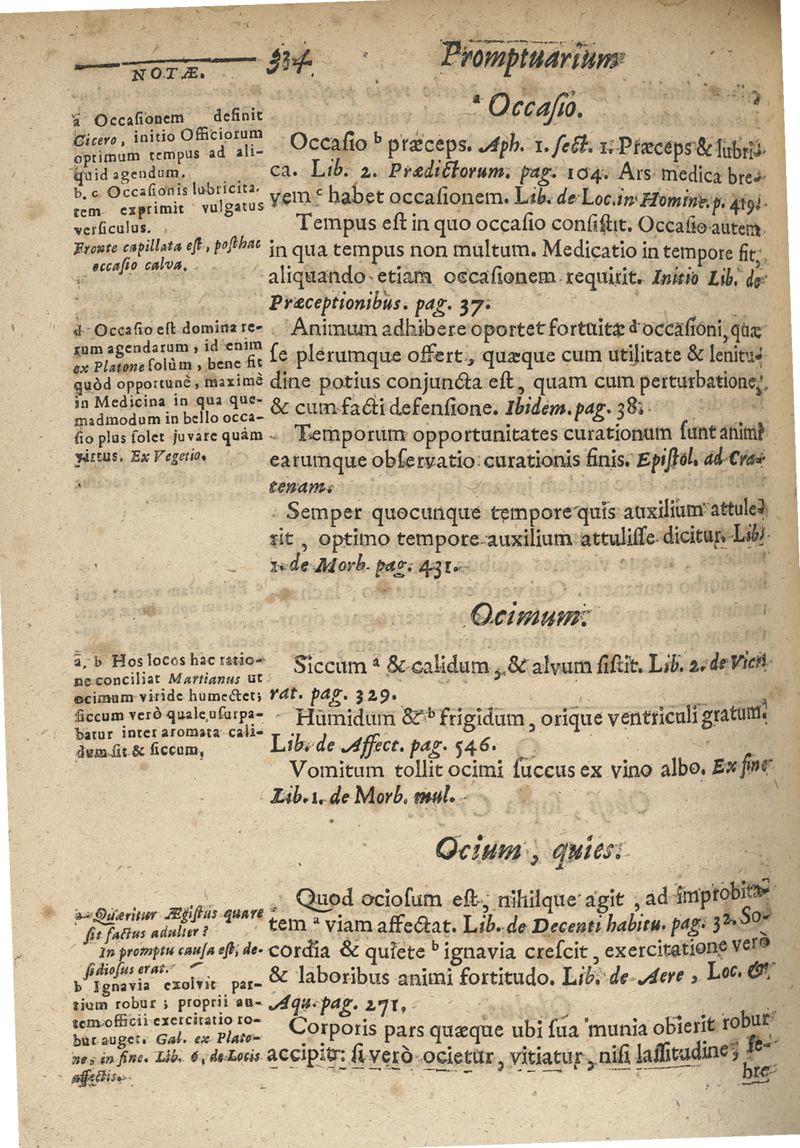 334 Promptuarium
NOTÆ.
a Occaſionem definit
Cicero, initio Officiorum
optimum tempus ad ali-
quid agendum.
b. c Occaſionis lubricita-
tem exprimit vulgatus
verſiculus.
Fronte capillata eſt, poſthac
occaſio calva.
d Occaſio eſt domina re-
rum agendarum, id enim
ex Platone ſolùm, bene fit
quòd opportunè, maximè
in Medicina in qua que-
madmodum in bello occa-
ſio plus ſolet juvare quàm
virtus. Ex Vegetio.
a Occaſio.
Occaſio b præceps. Aph. 1. ſect. 1. Præceps & lubri-
ca. Lib. 2. Prædictorum. pag. 104. Ars medica bre-
vem c habet occaſionem. Lib. de Loc. in Homine. p. 419.
Tempus eſt in quo occaſio conſiſtit. Occaſio autem
in qua tempus non multum. Medicatio in tempore fit,
aliquando etiam occaſionem requirit. Initio Lib. de
Præceptionibus. pag. 37.
Animum adhibere oportet fortuitæ d occaſioni, quæ
ſe plerumque offert, quæque cum utilitate & lenitu-
dine potius conjuncta eſt, quam cum perturbatione,
& cum facti defenſione. Ibidem. pag. 38.
Temporum opportunitates curationum ſunt animi
earumque obſervatio curationis finis. Epiſtol. ad Cra-
tenam.
Semper quocunque tempore quis auxilium attule-
rit, optimo tempore auxilium attuliſſe dicitur. Lib.
1. de Morb. pag. 431.
Ocimum.
a. b Hos locos hac ratio-
ne conciliat Martianus ut
ocimum viride humectet;
ſiccum verò quale uſurpa-
batur inter aromata cali-
dum ſit & ſiccum.
Siccum a & calidum, & alvum ſiſtit. Lib. 2. de Vict.
rat. pag. 329.
Humidum & b frigidum, orique ventriculi gratum.
Lib. de Affect. pag. 546.
Vomitum tollit ocimi ſuccus ex vino albo. Ex fine
Lib. 1. de Morb. mul.
Ocium, quies.
a Quæritur Ægiſtus quare
ſit factus adulter?
In promptu cauſa eſt, de-
ſidioſus erat.
b Ignavia exolvit par-
tium robur; proprii au-
tem officii exercitatio ro-
bur auget. Gal. ex Plato-
ne, in fine. Lib. 6. de Locis
affectis.
Quod ocioſum eſt, nihilque agit, ad improbita-
tem a viam affectat. Lib. de Decenti habitu. pag. 32. So-
cordia & quiete b ignavia creſcit, exercitatione verò
& laboribus animi fortitudo. Lib. de Aere, Loc. &
Aqu. pag. 271.
Corporis pars quæque ubi ſua munia obierit robur
accipit: ſi verò ocietur, vitiatur, niſi laſſitudine, fe-
bre